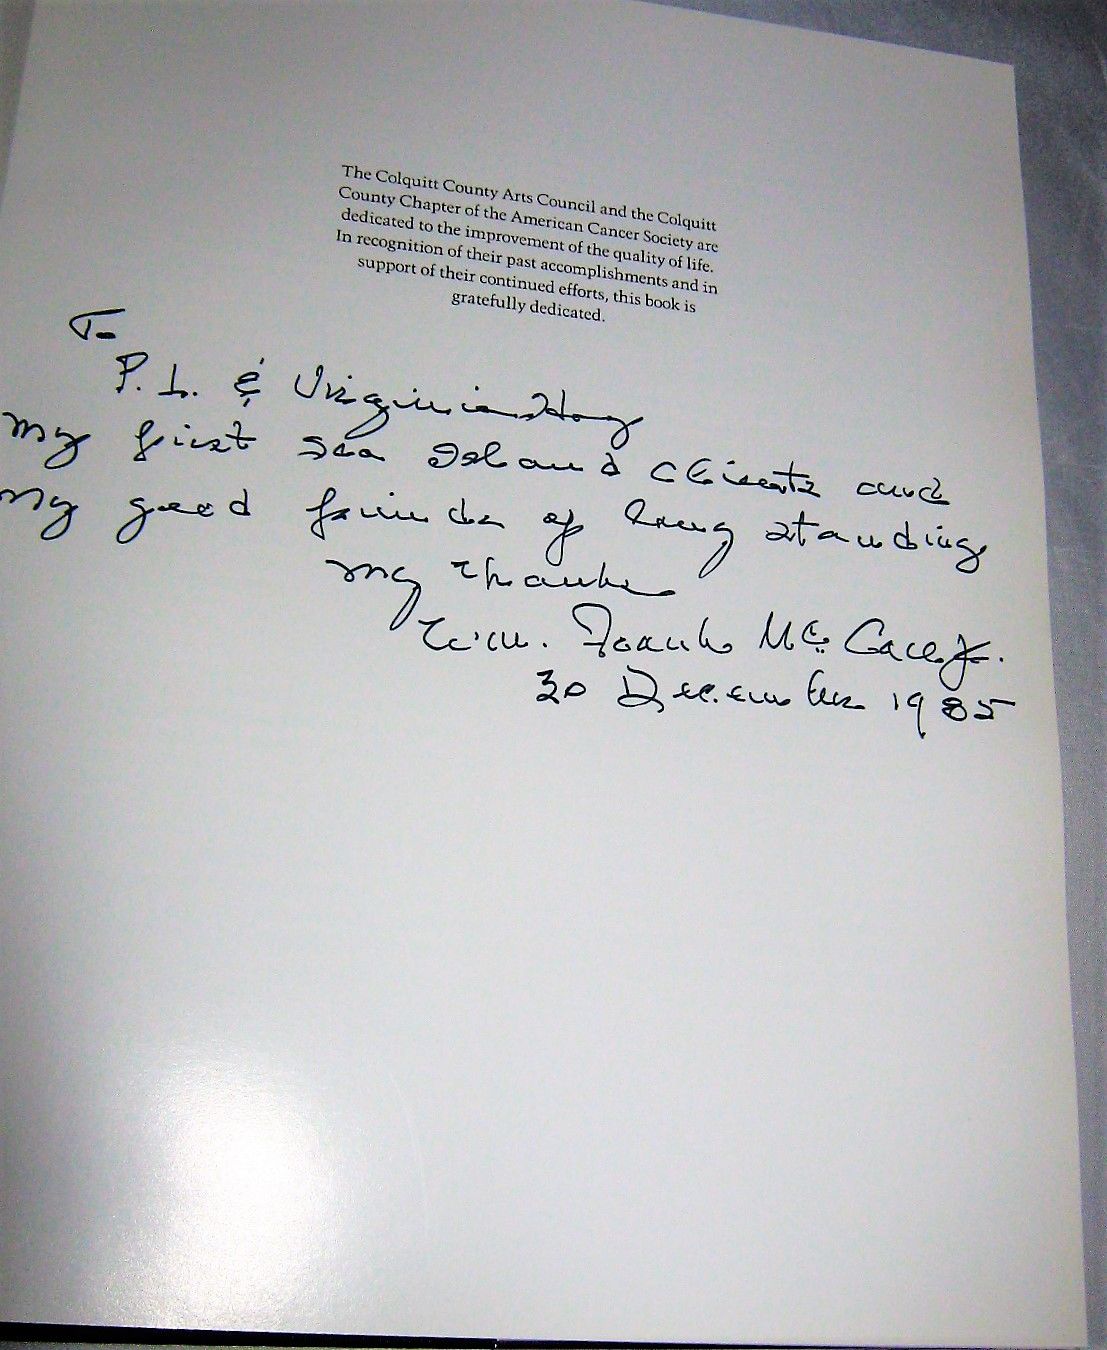 The Colquitt County Arts Council and the Colquitt
County Chapter of the American Cancer Society are
dedicated to the improvement of the quality of life.
In recognition of their past accomplishments and in
support of their continued efforts, this book is
gratefully dedicated.
To
P. L. & Virginia
My first Sea Island clients and
my good friends of long standing
My thanks
Wm. Frank McCall Jr.
30 December 1985